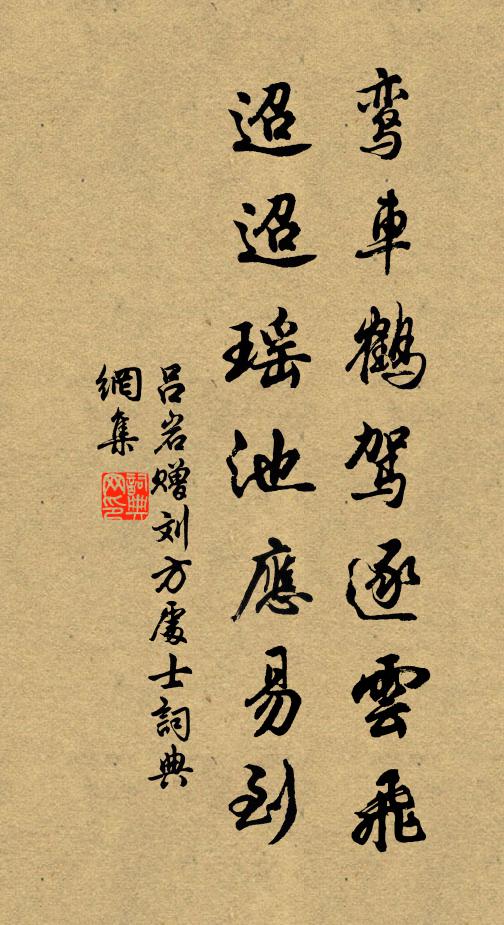 鸾車鶴駕逐雲飛
迢迢瑶池應易到
吕岩赠刘方處士詞典
網集
詞典
网印